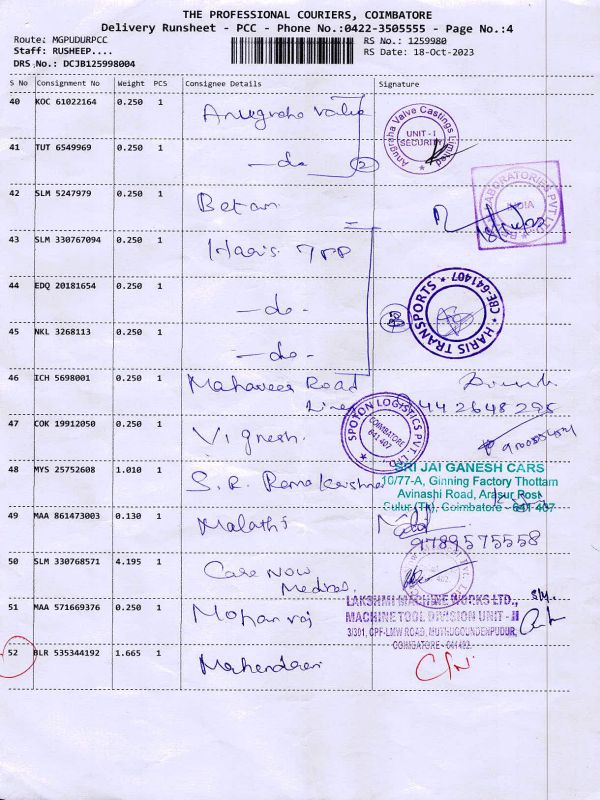 THE PROFESSIONAL COURIERS, COIMBATORE
Delivery Runsheet - PCC - Phone No.:0422-3505555 - Page No.:4
Route: MGPUDURPCC
RS No.: 1259980
Staff: RUSHEEP....
RS Date: 18-Oct-2023
DRS No.: DCJB125998004
S No Consignment No Weight PCS Consignee Details Signature
40 KOC 61022164 0.250 1 Anugraha Valve
Anugraha Valve Castings Limited
UNIT - I
SECURITY
41 TUT 6549969 0.250 1 -do- 2
42 SLM 5247979 0.250 1
LABORATORIES PVT LTD
INDIA
43 SLM 330767094 0.250 1 Haris
44 EDQ 20181654 0.250 1 -do-
HARIS TRANSPORTS
CBE-641407
45 NKL 3268113 0.250 1 -do-
46 ICH 5698001 0.250 1 Mahaveer Road
Lines
442648295
47 COK 19912050 0.250 1 Vignesh.
SPOTON LOGISTICS PVT. LTD.
COIMBATORE
641 407
48 MYS 25752608 1.010 1 S. R. Ramakrishna
SRI JAI GANESH CARS
10/77-A, Ginning Factory Thottam
Avinashi Road, Arasur Post
Sulur (Tk), Coimbatore - 641 407
49 MAA 861473003 0.130 1 Malathi
9789575558
50 SLM 330768571 4.195 1 Care Now
Medical
51 MAA 571669376 0.250 1 Mohanraj
LAKSHMI MACHINE WORKS LTD.,
MACHINE TOOL DIVISION UNIT - II
3/301, CPF-LMW ROAD, MUTHUGOUNDENPUDUR,
COIMBATORE - 641402.
52 BLR 535344192 1.665 1 Mahendran
C/N